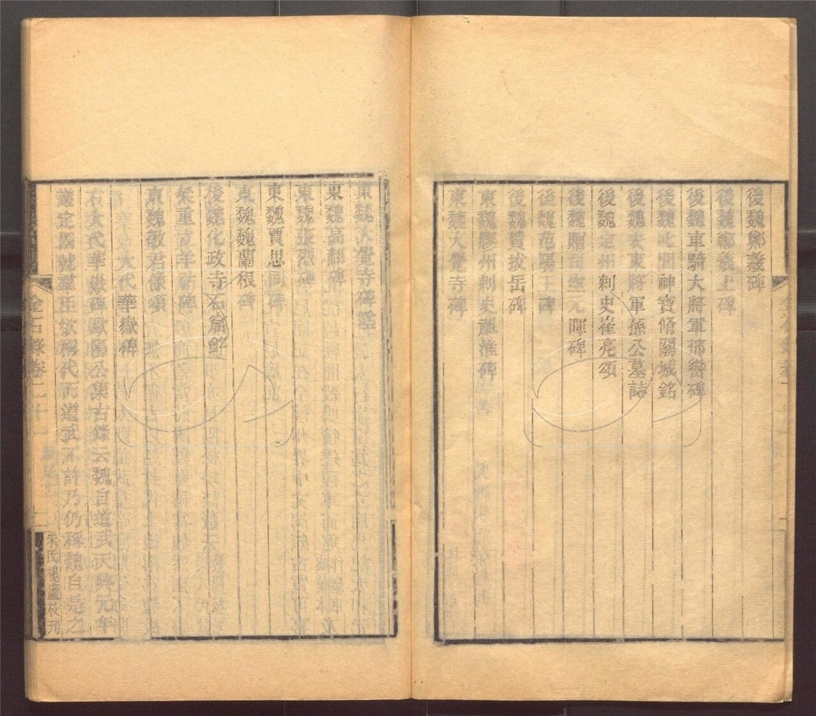 後魏鄭羲碑
後魏鄭羲上碑
後魏車騎大將軍邢巒碑
後魏 神寶脩關城銘
後魏安東將軍孫公墓誌
後魏定州刺史崔亮頌
後魏贈司空元暉碑
後魏范陽王碑
後魏賀拔岳碑
東魏膠州刺史 碑
東魏大覺寺碑
東魏大覺寺碑陰
東魏高翻碑
東魏張烈碑
東魏賈思同碑
東魏魏蘭根碑
後魏化政寺石窟銘
東魏敬君像頌
大代華嶽碑
右大代華嶽碑歐陽公集古錄云魏自道武天興元年
議定國號羣臣欲稱代而道武不許乃仍稱魏自是之
金石錄卷二十一
朱氏槐廬校刊